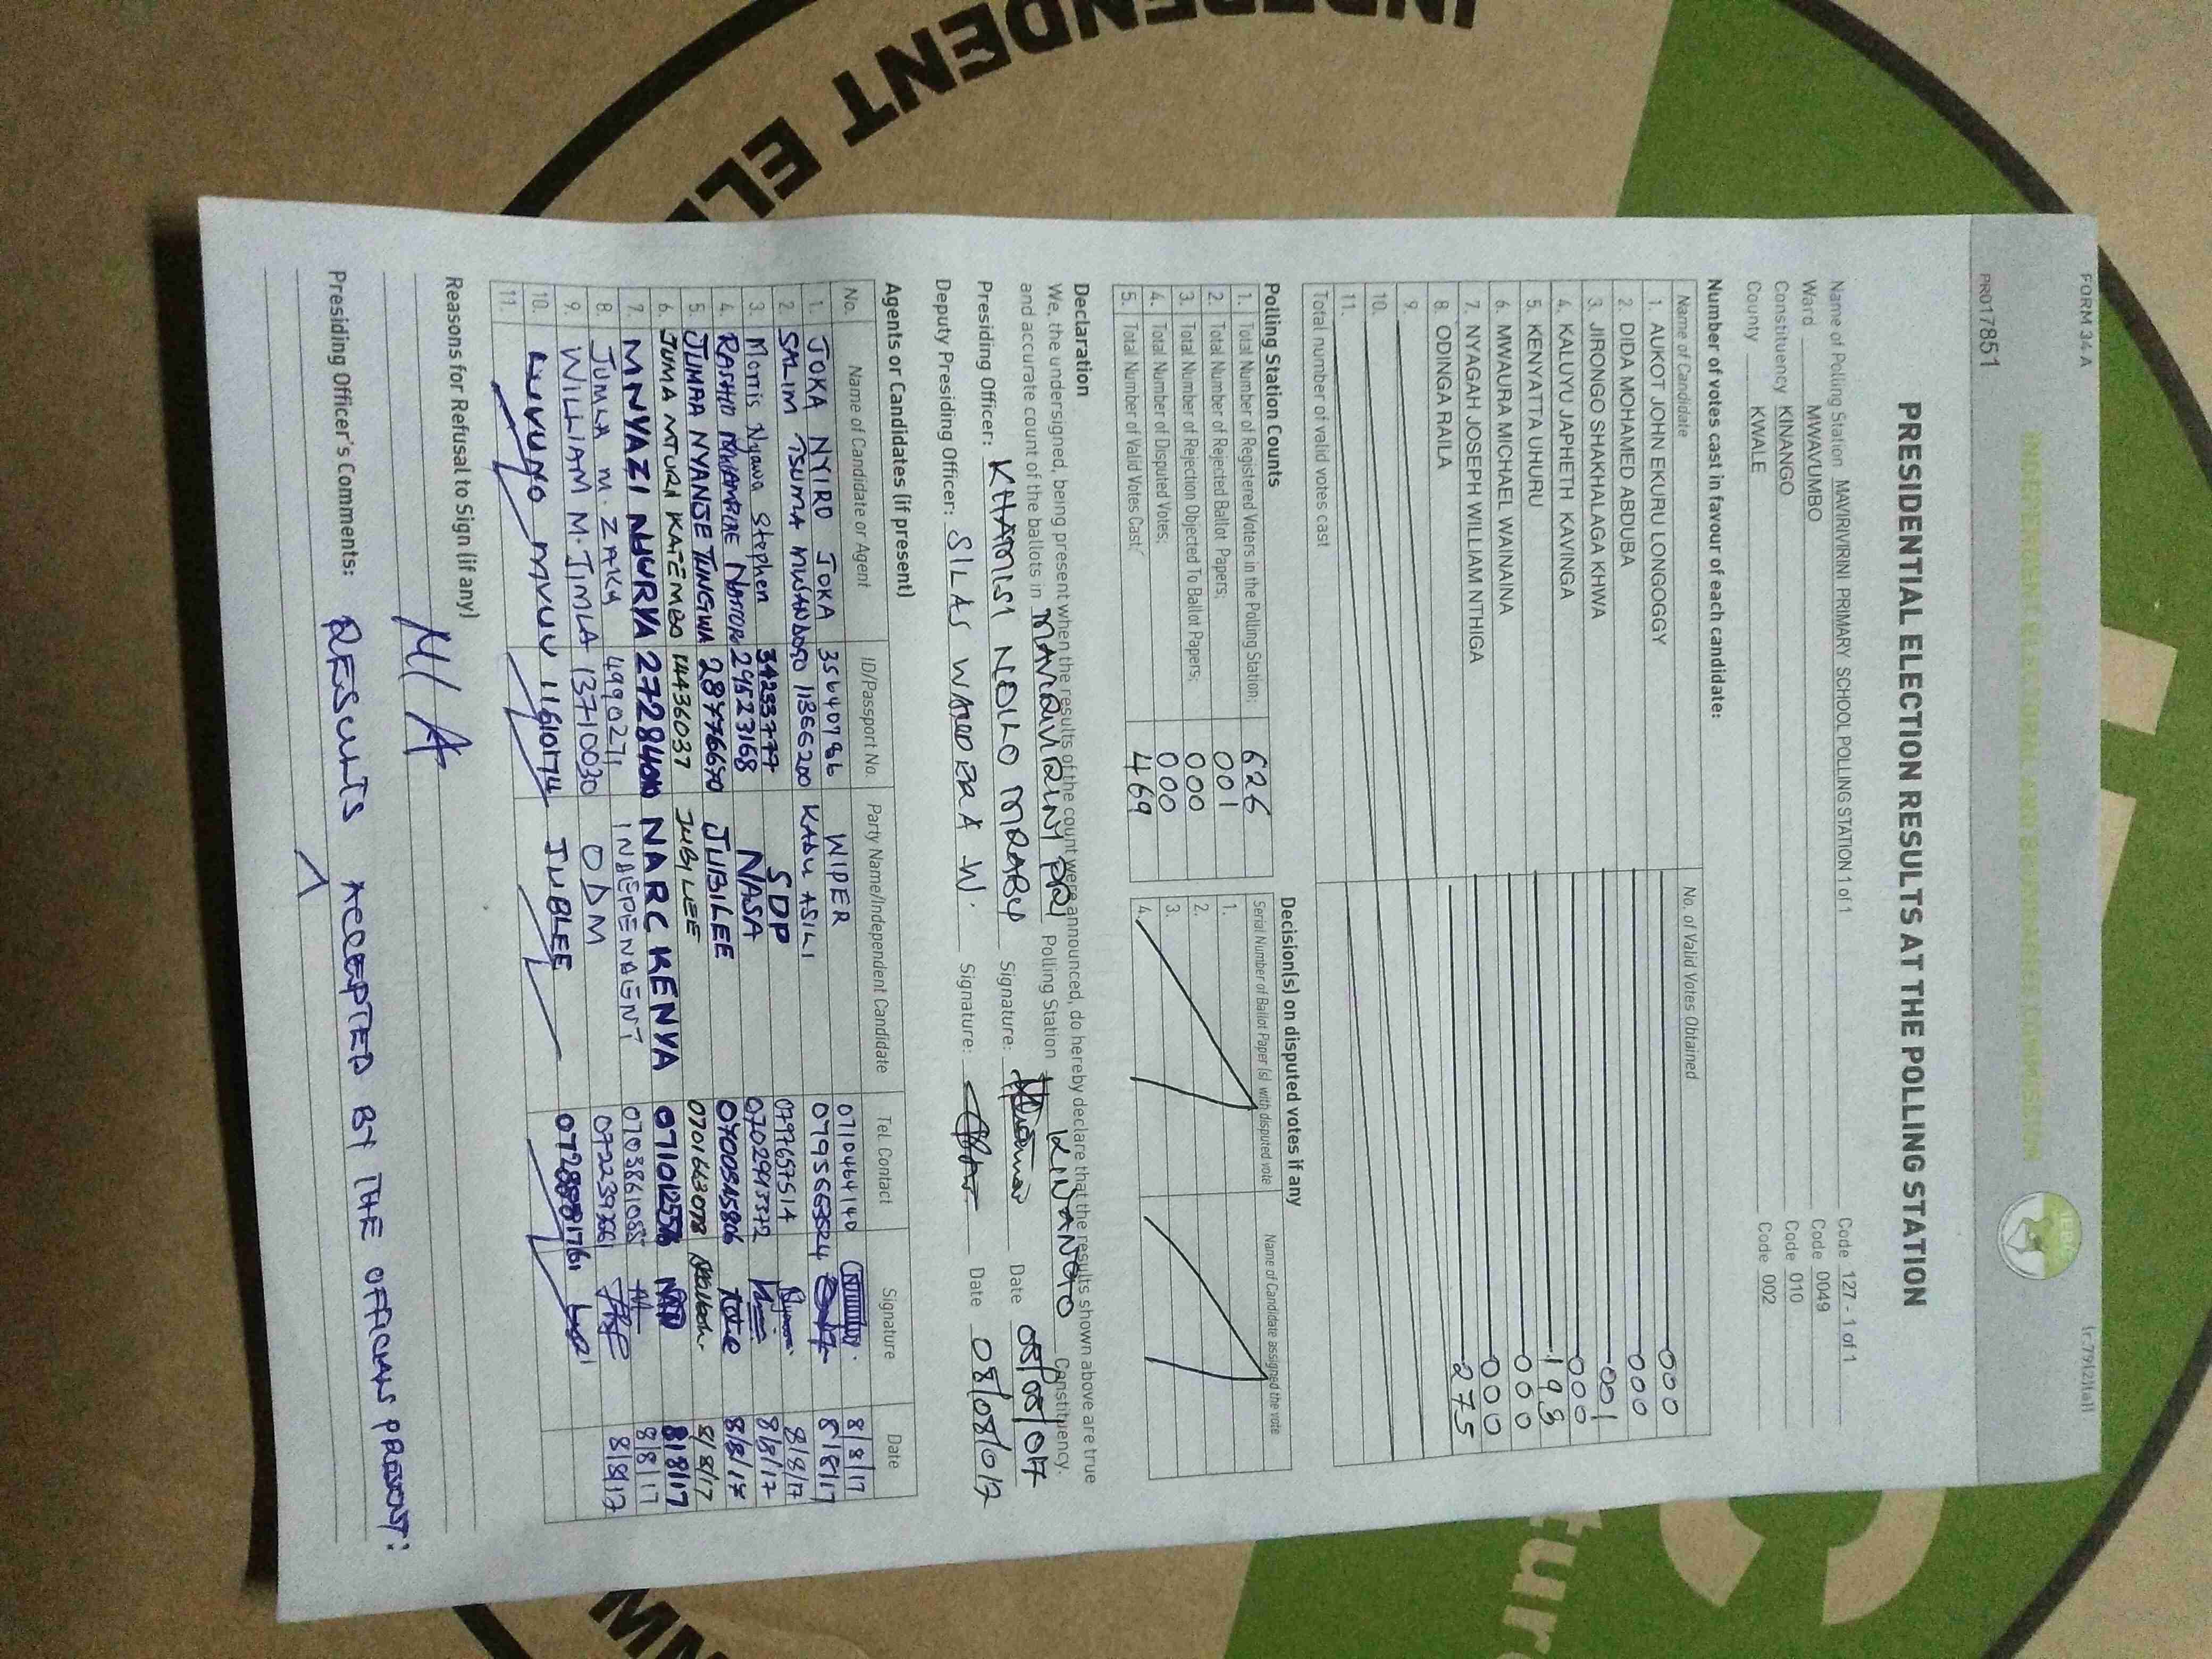 INDEPENDENT EL
FORM 34 A (r.79(2)(a))
PRO17851
INDEPENDENT ELECTORAL AND BOUNDARIES COMMISSION
IEBC
PRESIDENTIAL ELECTION RESULTS AT THE POLLING STATION
Name of Polling Station MAVIRIVIRINI PRIMARY SCHOOL POLLING STATION 1 of 1 Code 127 - 1 of 1
Ward MWAVUMBO Code 0049
Constituency KINANGO Code 010
County KWALE Code 002
Number of votes cast in favour of each candidate:
Name of Candidate No. of Valid Votes Obtained
1. AUKOT JOHN EKURU LONGOGGY 000
2. DIDA MOHAMED ABDUBA 000
3. JIRONGO SHAKHALAGA KHWA 001
4. KALUYU JAPHETH KAVINGA 000
5. KENYATTA UHURU 193
6. MWAURA MICHAEL WAINAINA 000
7. NYAGAH JOSEPH WILLIAM NTHIGA 000
8. ODINGA RAILA 275
9.
10.
11.
Total number of valid votes cast
Polling Station Counts
1. Total Number of Registered Voters in the Polling Station; 626
2. Total Number of Rejected Ballot Papers; 001
3. Total Number of Rejection Objected To Ballot Papers; 000
4. Total Number of Disputed Votes; 000
5. Total Number of Valid Votes Cast; 469
Decision(s) on disputed votes if any
Serial Number of Ballot Paper (s) with disputed vote Name of Candidate assigned the vote
1.
2.
3.
4.
Declaration
We, the undersigned, being present when the results of the count were announced, do hereby declare that the results shown above are true
and accurate count of the ballots in MAVIRIVIRINI PRI Polling Station KINANGO Constituency.
Presiding Officer: KHAMISI NDILO MRABU Signature: Date 08/08/017
Deputy Presiding Officer: SILAS WANDERA W. Signature: Date 08/08/017
Agents or Candidates (if present)
No. Name of Candidate or Agent ID/Passport No. Party Name/Independent Candidate Tel. Contact Signature Date
1. JOKA NYIRO JOKA 35640786 WIPER 0710464140 8/8/17
2. SALIM TSUMA 11366200 KADU ASILI 0795663524 8/8/17
3. Morris Nyawa Stephen 34233777 SDP 0797657514 8/8/17
4. RASHID 29523168 NASA 0702993372 8/8/17
5. JUMAA NYANJE TUNGWA 28776650 JUBILEE 8/8/17
6. JUMA MTURI KATEMBO 14436037 JUBILEE 0701663078 8/8/17
7. MNYAZI NARC KENYA 8/8/17
8. JUMA M. ZAKA 4990271 INDEPENDENT 0703861055 8/8/17
9. WILLIAM M. JIMLA 13710030 ODM 8/8/17
10. LUVUNO MVUU JUBLEE
11.
Reasons for Refusal to Sign (if any)
N/A
Presiding Officer's Comments: RESULTS ACCEPTED BY THE OFFICIALS PRESENT: